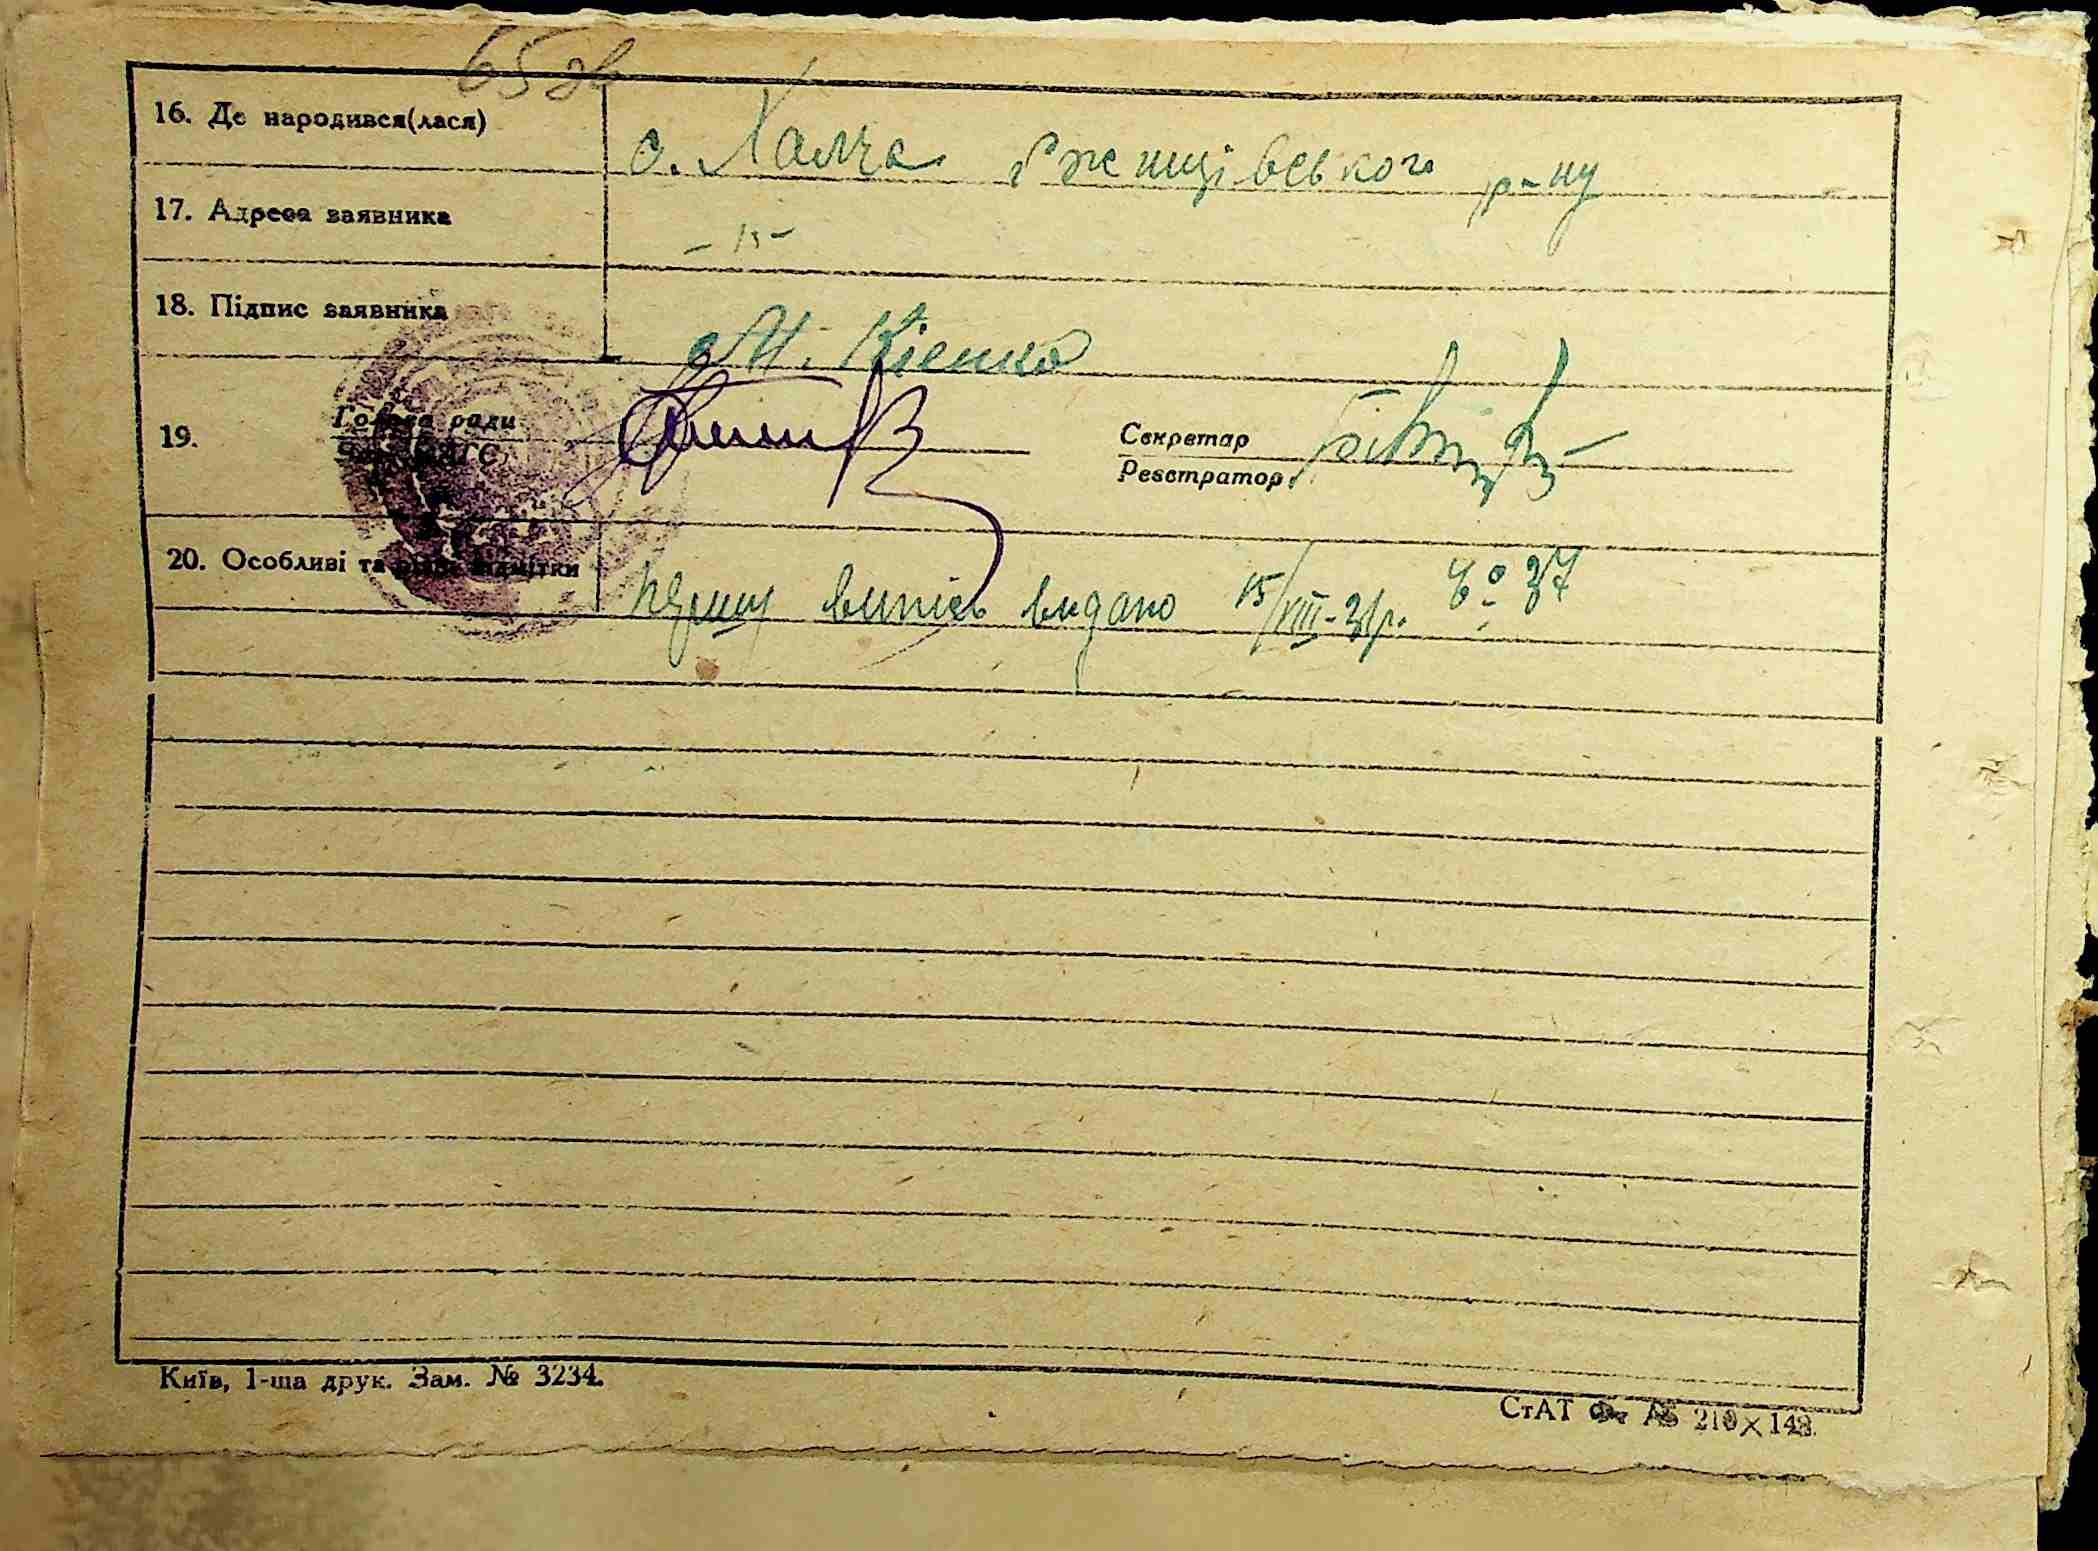 65 зв
16. Де народився(лася) с. Халча Ржищівського р-ну
17. Адреса заявника - "-
18. Підпис заявника М. Кієнко
19. Голова ради Секретар
Зав. ЗАГС Реєстратор
20. Особливі та відмітки першу випісь видано 15/VIII-31р. № 37
Київ, 1-ша друк. Зам. № 3234.
СтАТ Ф. А5 210×148.